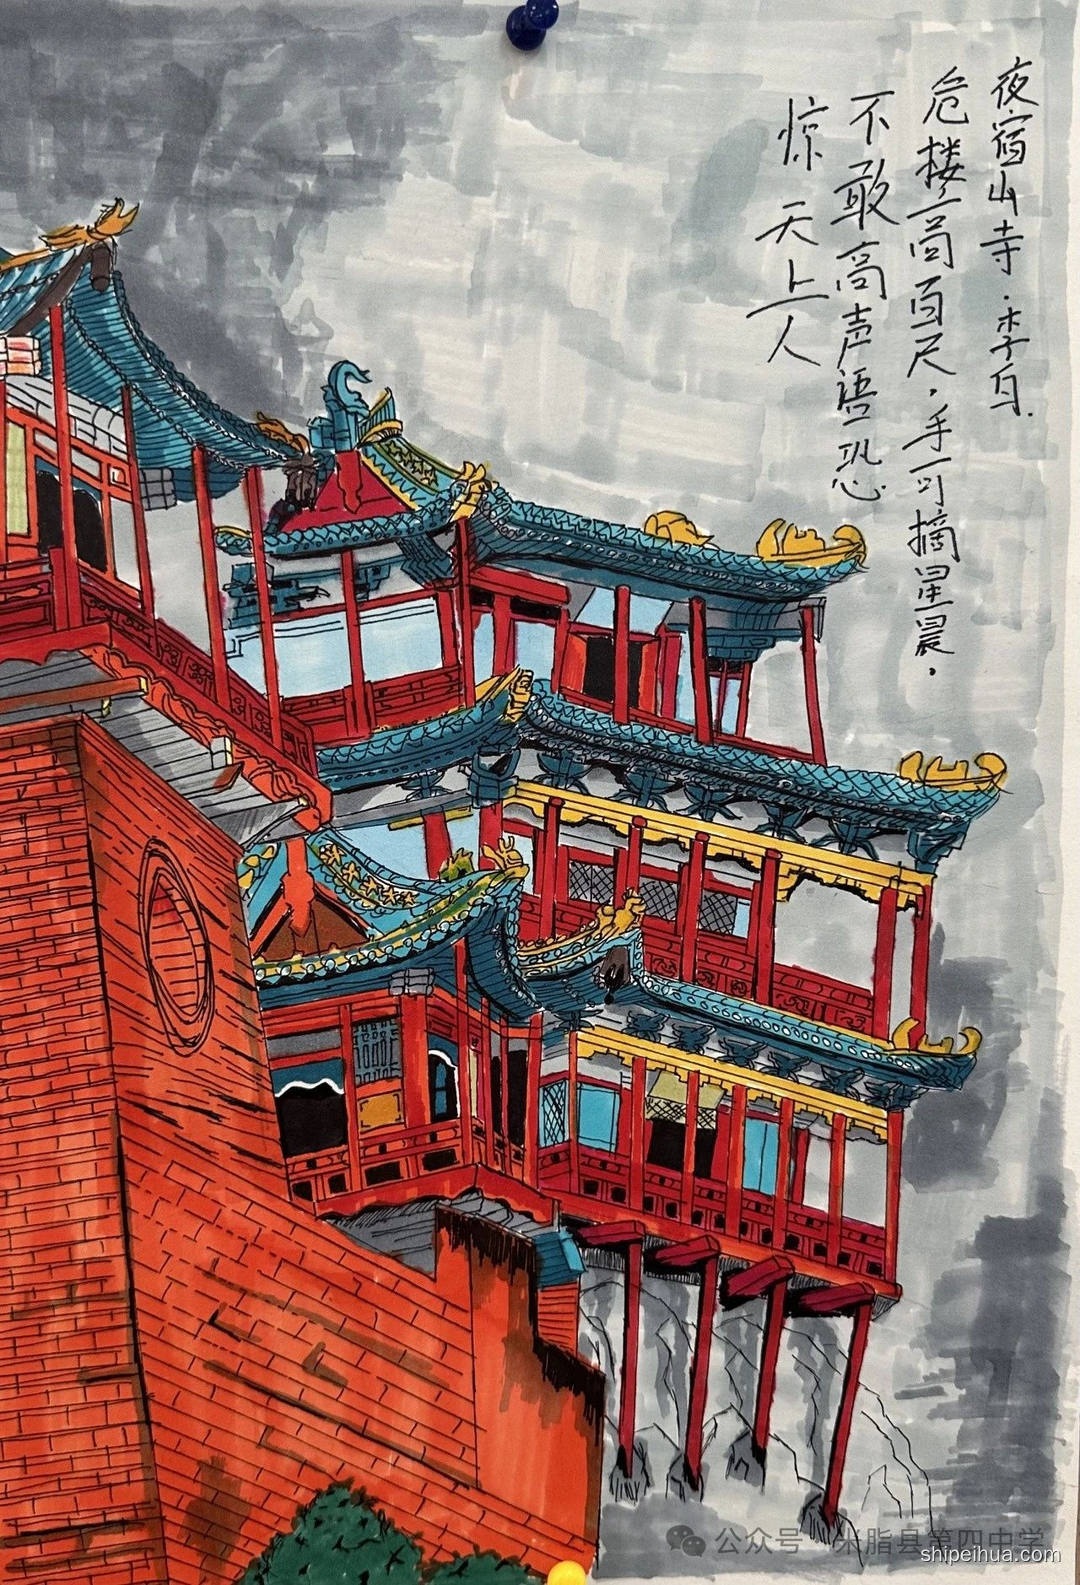 夜宿山寺·李白.
危楼高百尺，手可摘星晨，
不敢高声语恐
惊天上人
公众号 · 米脂县第四中学
shipeihua.com